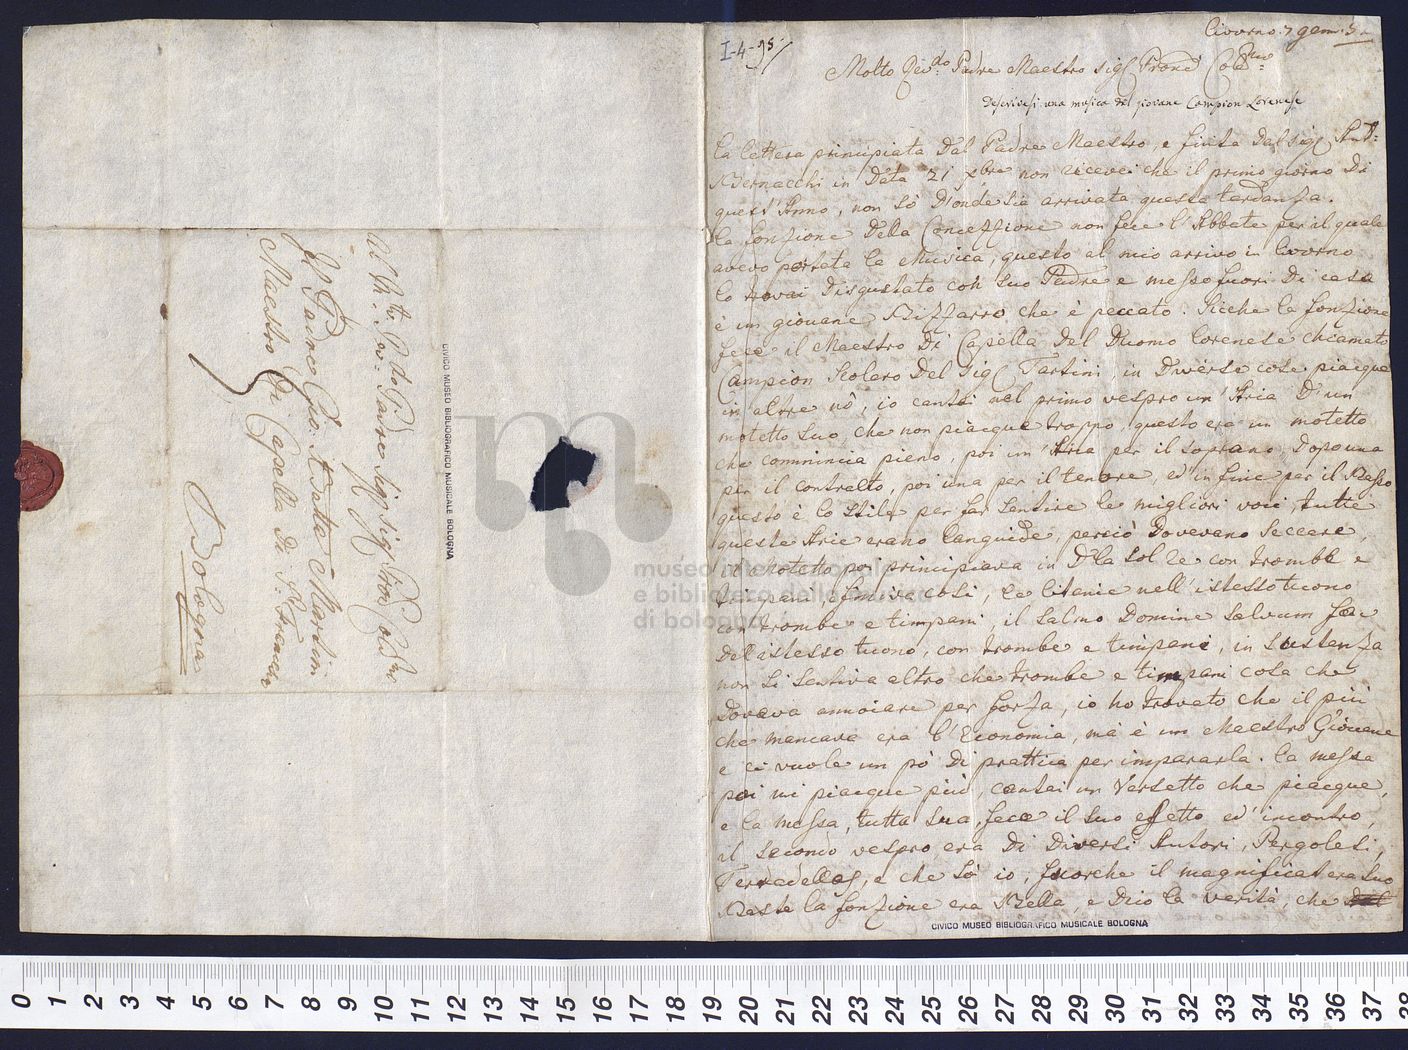 Al M.to Rev.do Padre Sig.r Sig.r Pron Col.mo
Il Padre Gio: Batta Martini
Maestro Di Capella Di S: Francesco
Bologna
CIVICO MUSEO BIBLIOGRAFICO MUSICALE BOLOGNA
museo internazionale
e biblioteca della musica
di bologna
I-4-95
Livorno 7 gen:
Molto Rev.do Padre Maestro Sig.r Prone Col.mo
Descrivesi una musica del giovane Campion Lorenese
La lettera principiata dal Padre Maestro, e finita dal Sig.r Ant.o
Bernacchi in data 21 Xbre non ricevei che il primo giorno Di
quest'Anno, non sò D'onde sia arrivata questa tardanza.
la fonzione Della Concezzione non fece l'Abbate per il quale
avevo portata la Musica, questo al mio arrivo in Livorno
lo trovai Disgustato con suo Padre e messo fuori Di casa
è un giovane Bizzarro che è peccato. Sicche la fonzione
fece il Maestro Di Capella Del Duomo Lorenese chiamato
Campion Scolaro Del Sig.r Tartini in Diverse cose piacque
in altre nò, io cantai nel primo vespro un'Aria D'un
motetto suo, che non piacque troppo, questo era un motetto
che comnincia pieno, poi un'Aria per il Soprano Dopo una
per il contralto, poi una per il tenore ed in fine per il Basso
questo è lo Stile per far Sentire le migliori voci, tutte
queste Arie erano languide, perciò Dovevano Seccare,
il Motetto poi principiava in D la Sol re con trombe e
timpani, e finiva così, le litanie nell'istesso tuono
con trombe e timpani, il Salmo Domine Salvum fac
Dell'istesso tuono, con trombe e timpani, in Sustanza
non Si Sentiva altro che trombe e timpani cosa che
Doveva annoiare per forza, io ho trovato che il più
che mancava era l'Economia, mà è un Maestro Giovane
e ci vuole un pò Di prattica per impararla. La messa
poi mi piacque più, cantai un Versetto che piacque,
e la messa, tutta Sua, fece il Suo effetto ed'incontro,
il Secondo vespro era Di Diversi Autori, Pergolesi,
Terradellas, e che Sò io, fuorche il magnificat era Suo
Basta la fonzione era Bella, e Dico la verità, che
CIVICO MUSEO BIBLIOGRAFICO MUSICALE BOLOGNA
0 1 2 3 4 5 6 7 8 9 10 11 12 13 14 15 16 17 18 19 20 21 22 23 24 25 26 27 28 29 30 31 32 33 34 35 36 37 38